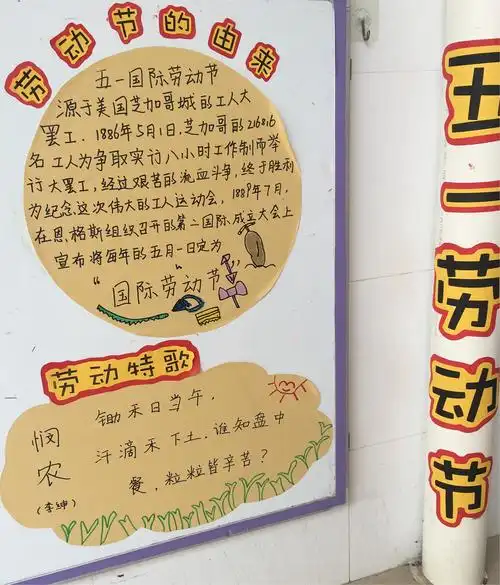 劳动节的由来
五一国际劳动节
源于美国芝加哥城的工人大
罢工.1886年5月1日,芝加哥的216816
名工人为争取实讨八小时工作制而举
讨大罢工,经过艰苦的流血斗争,终于胜利
为纪念这次伟大的工人运动会,1889年7月,
在恩.格斯组织召开的第二国际成立大会上
宣布将每年的五月一日定为
“国际劳动节”
劳动特歌
悯农
(李绅)
锄禾日当午,
汗滴禾下土.谁知盘中
餐,粒粒皆辛苦?
五一劳动节